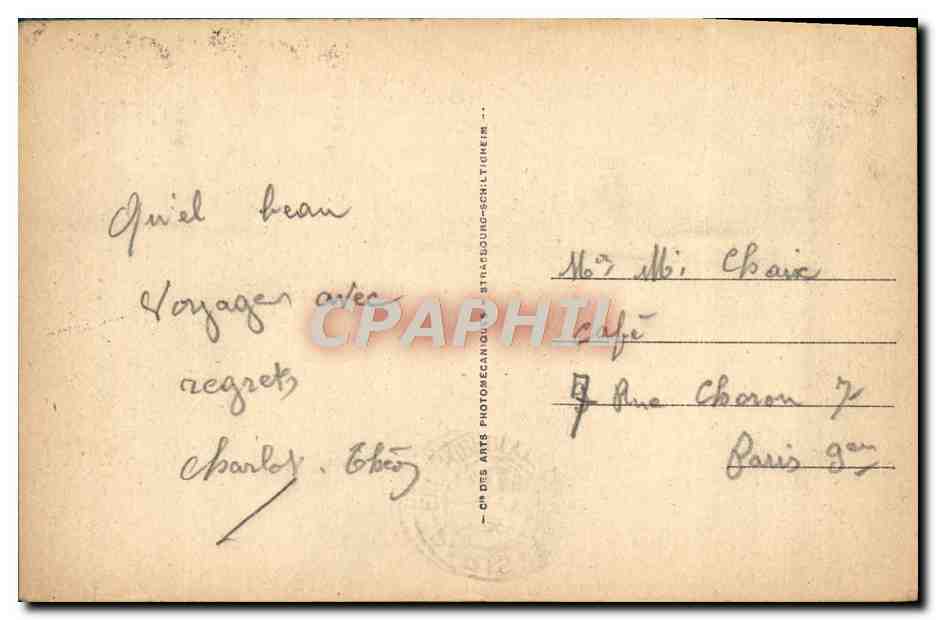 Qu'el beau
voyages avec
regrets
Charlot. Théo
— Cie DES ARTS PHOTOMECANIQUES STRASBOURG-SCHILTIGHEIM —
CPAPHIL
Mr Mi Chaix
Café
7 Rue Choron 7
Paris 9em